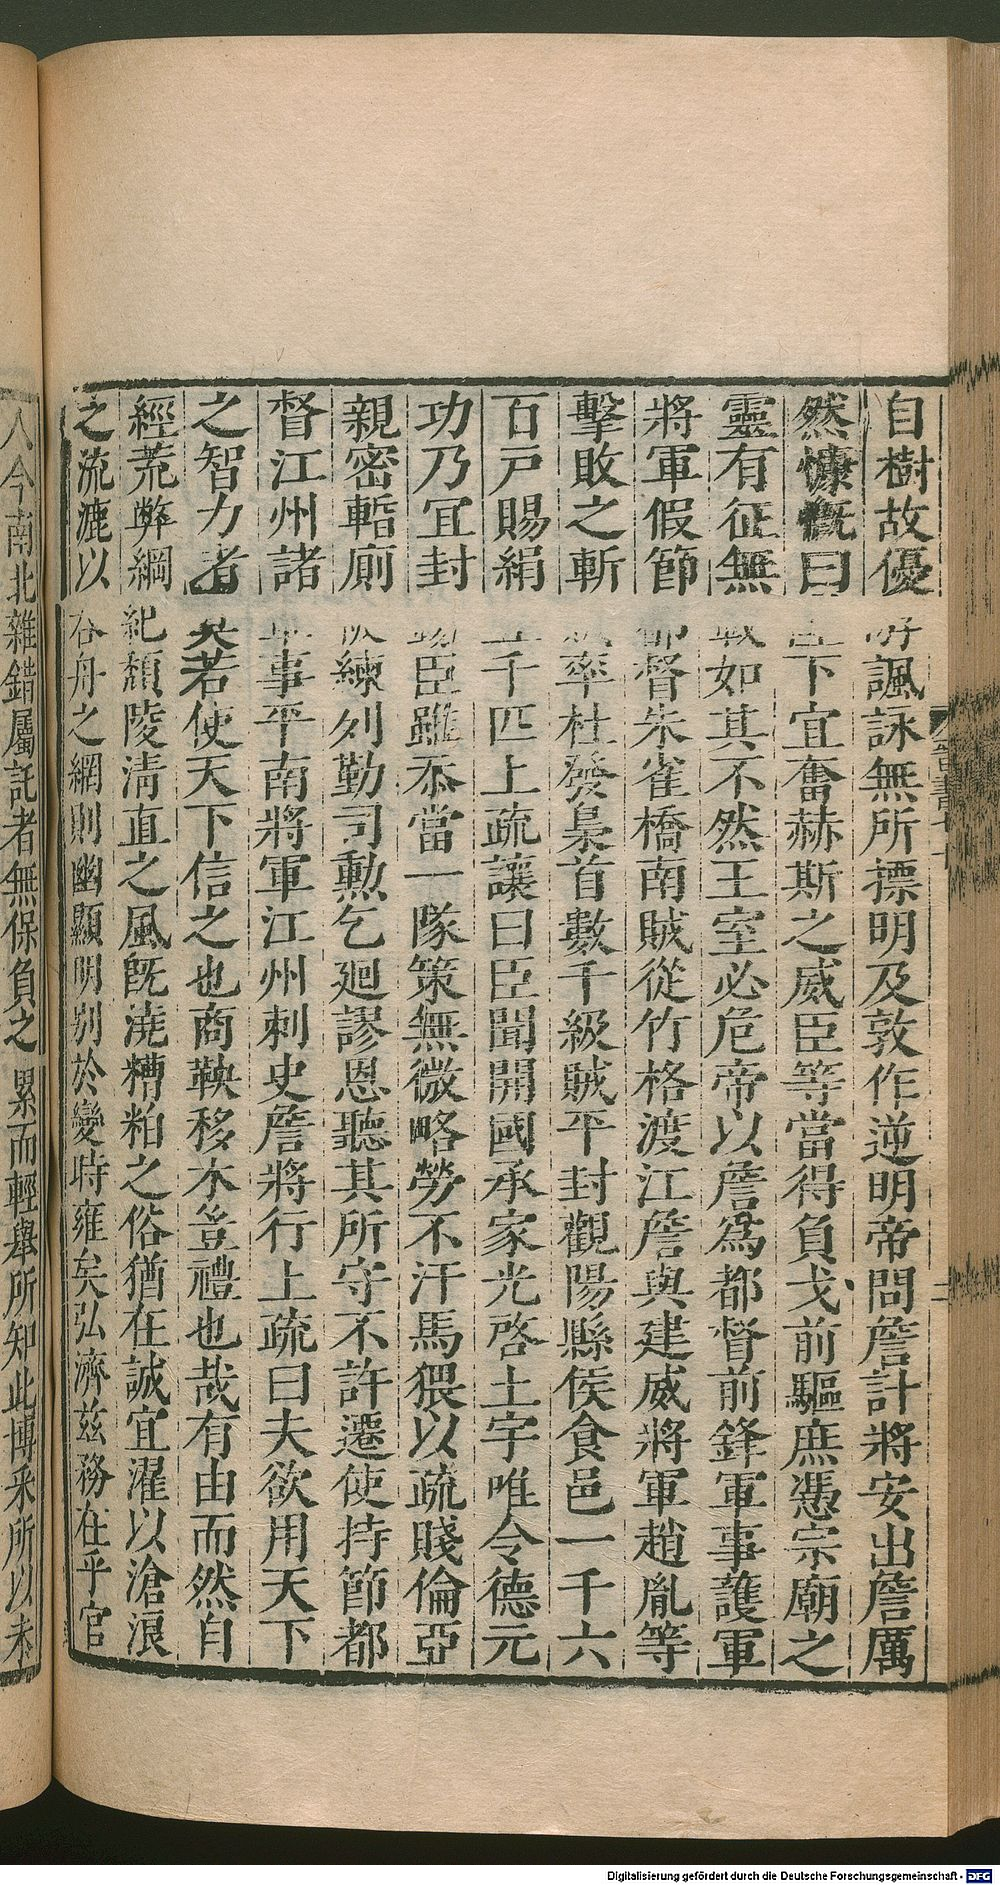 自樹故優 諷詠無所摽明及敦作逆明帝問詹計將安出詹厲
然慷慨曰 下宜奮赫斯之威臣等當得負戈前驅庶憑宗廟之
靈有征無 如其不然王室必危帝以詹為都督前鋒軍事護軍
將軍假節 督朱雀橋南賊從竹格渡江詹與建威將軍趙胤等
擊敗之斬 率杜發梟首數千級賊平封觀陽縣侯食邑一千六
百戶賜絹 千匹上疏讓曰臣聞開國承家光啓土宇唯令德元
功乃宜封 臣雖忝當一隊策無微略勞不汗馬猥以疏賤倫亞
親密暫廁 練列勤司勲乞迴謬恩聽其所守不許遷使持節都
督江州諸 事平南將軍江州刺史詹將行上疏曰夫欲用天下
之智力者 莫若使天下信之也商鞅移木豈禮也哉有由而然自
經荒弊綱 紀頹陵清直之風旣澆糟粕之俗猶在誠宜濯以滄浪
之流漉以 吞舟之網則幽顯明別於變時雍矣弘濟兹務在乎官
人今南北雜錯屬託者無保負之累而輕舉所知此博采所以未
Digitalisierung gefördert durch die Deutsche Forschungsgemeinschaft - DFG